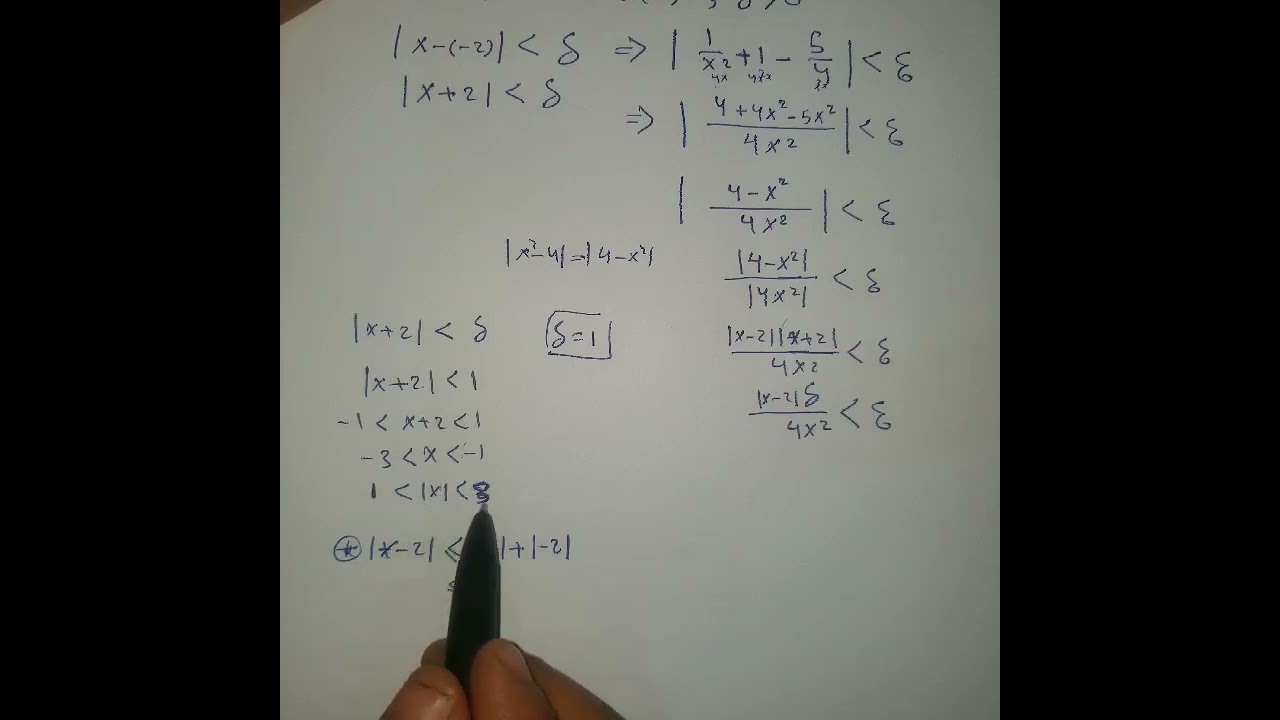 |x-(-2)| < δ ⇒ | 1/x² + 1 - 5/4 | < ε
|x+2| < δ
⇒ | (4+4x²-5x²)/4x² | < ε
| (4-x²)/4x² | < ε
|x²-4|=|4-x²|
|4-x²|/|4x²| < ε
|x+2| < δ δ=1
|x-2||x+2|/4x² < ε
|x+2| < 1
|x-2|δ/4x² < ε
-1 < x+2 < 1
-3 < x < -1
1 < |x| < 3
⊛ |x-2| ≤ |+|-2|